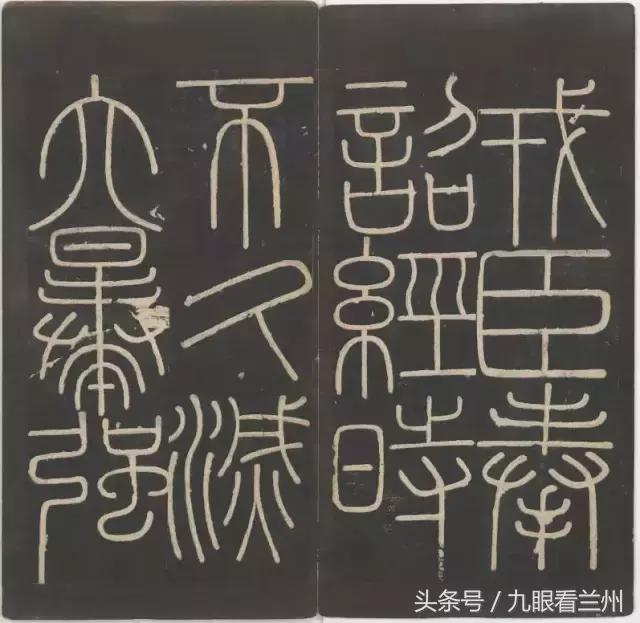 戎臣奉
詔經時
不久滅
六暴強
头条号 / 九眼看兰州